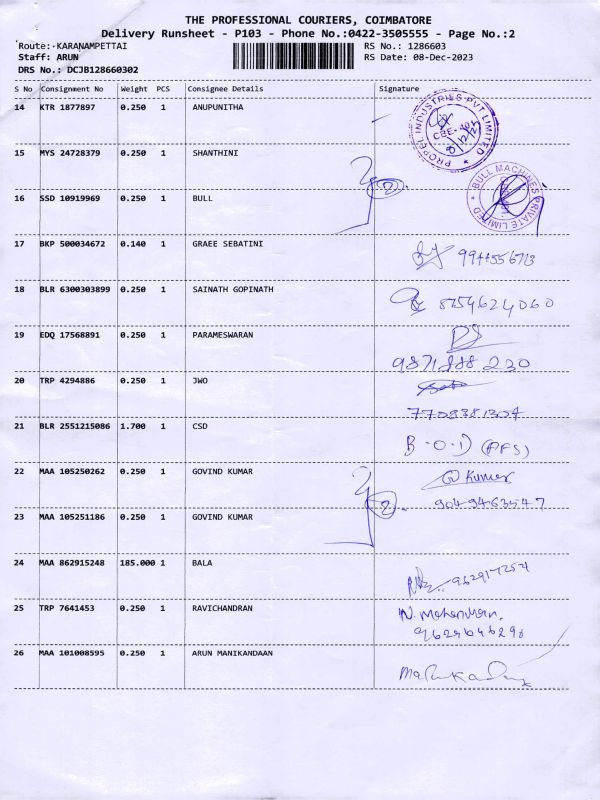 THE PROFESSIONAL COURIERS, COIMBATORE
Delivery Runsheet - P103 - Phone No.:0422-3505555 - Page No.:2
Route: KARANAMPETTAI RS No.: 1286603
Staff: ARUN RS Date: 08-Dec-2023
DRS No.: DCJB128660302
S No Consignment No Weight PCS Consignee Details Signature
14 KTR 1877897 0.250 1 ANUPUNITHA
PROPEL INDUSTRIES PVT LIMITED
15 MYS 24728379 0.250 1 SHANTHINI
2
16 SSD 10919969 0.250 1 BULL
BULL MACHINES PRIVATE LIMITED
17 BKP 500034672 0.140 1 GRAEE SEBATINI
18 BLR 6300303899 0.250 1 SAINATH GOPINATH
8754624060
19 EDQ 17568891 0.250 1 PARAMESWARAN
9871888230
20 TRP 4294886 0.250 1 JWO
7708381304
21 BLR 2551215086 1.700 1 CSD
22 MAA 105250262 0.250 1 GOVIND KUMAR
Kumar
2
9049463547
23 MAA 105251186 0.250 1 GOVIND KUMAR
24 MAA 862915248 185.000 1 BALA
25 TRP 7641453 0.250 1 RAVICHANDRAN
26 MAA 101008595 0.250 1 ARUN MANIKANDAAN